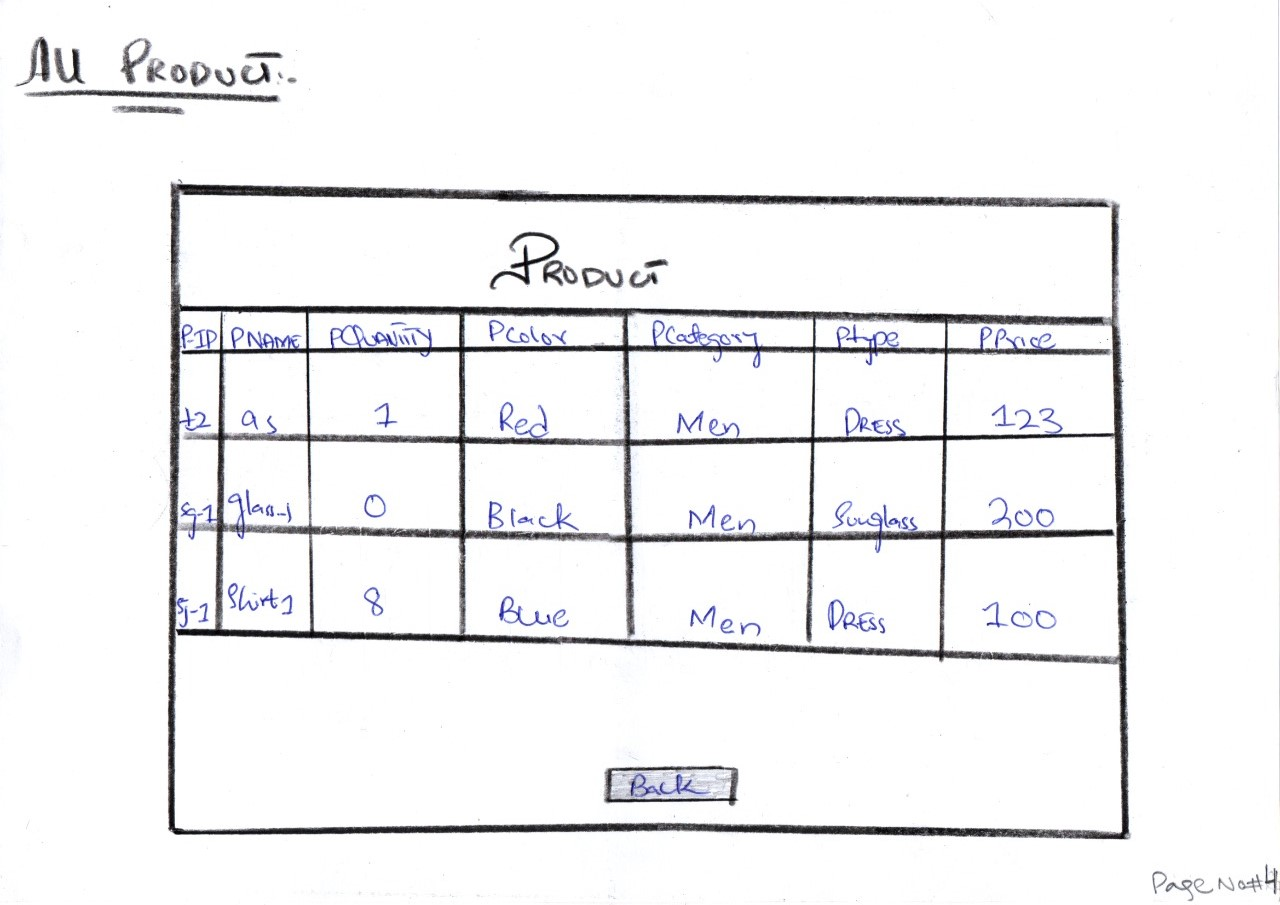 All PRODUCT:-
PRODUCT
P-IP PNAME PQUANTITY PColor PCategory Ptype PPrice
t2 as 1 Red Men DRESS 123
sg-1 glass-1 0 Black Men Sunglass 200
Sj-1 Shirt1 8 Blue Men DRESS 100
Back
Page No#4